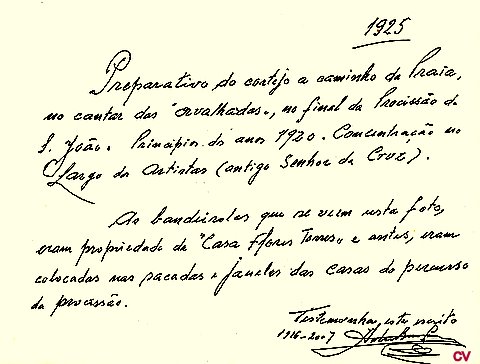 1925
Preparativo do cortejo a caminho da Praia,
no cantar das "orvalhadas", no final da Procissão de
S. João. Princípios de anos 1920. Concentração no
Largo de Artistas (antigo Senhor da Cruz).
As bandeirolas que se veem nesta foto,
eram propriedade da "Casa Flores Torres" e antes, eram
colocadas nas sacadas e janelas das casas do percurso
da procissão.
Testemunha, este escrito
1916-2007
CV